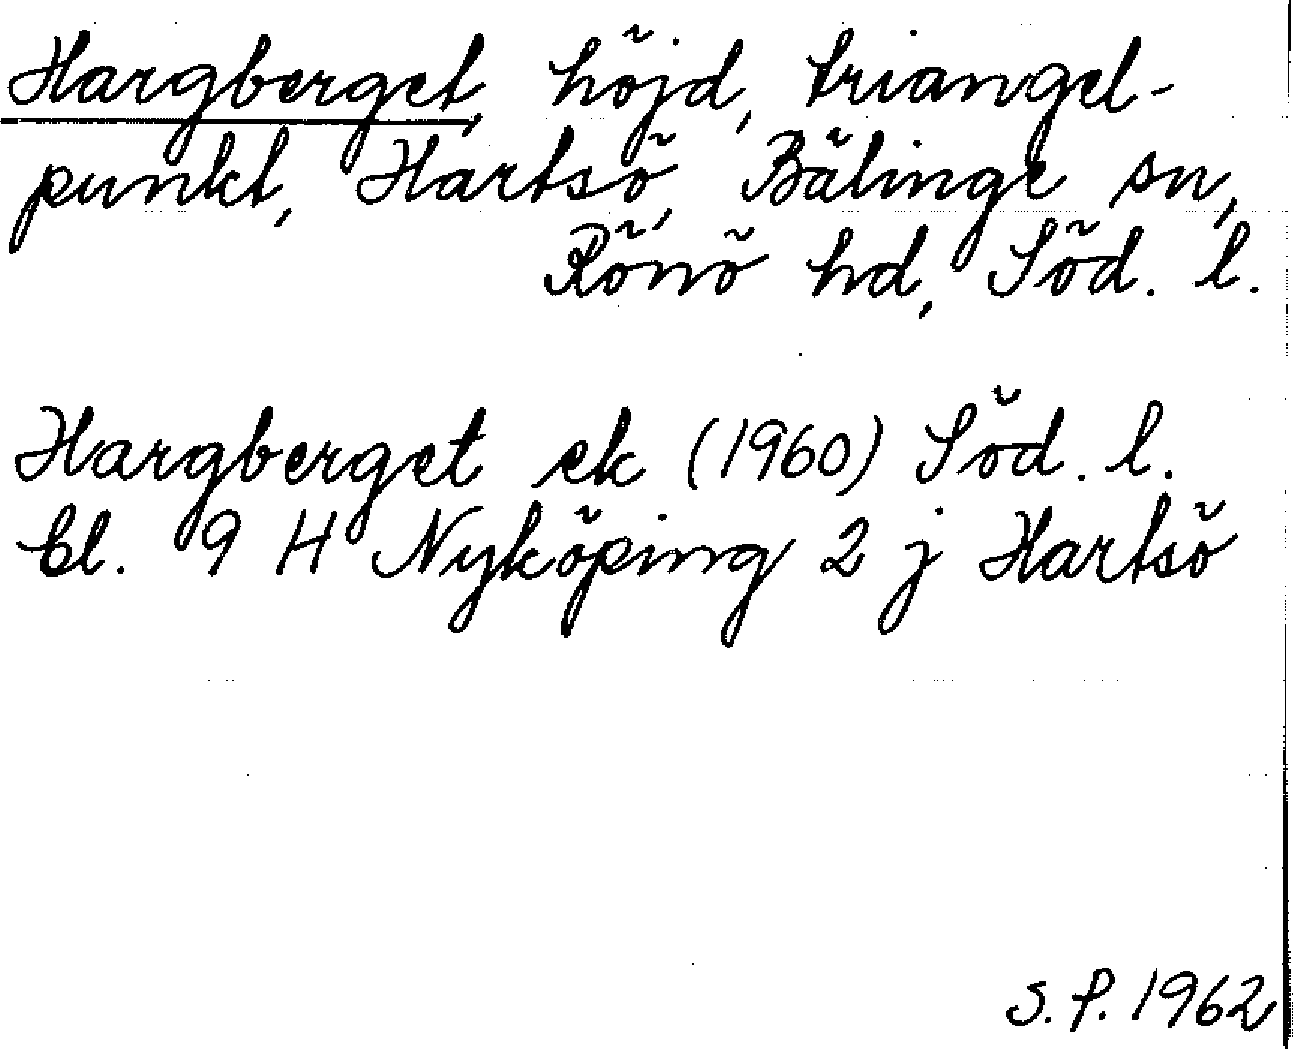 Hargberget, höjd, triangel-
punkt, Hartsö, Bälinge sn,
Rönö hd, Söd. l.
Hargberget ek (1960) Söd. l.
bl. 9 H Nyköping 2 j Hartsö
S. P. 1962